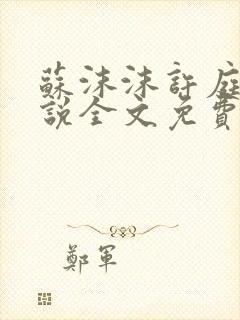 蘇沫沫許庭
說全文免費
鄭軍